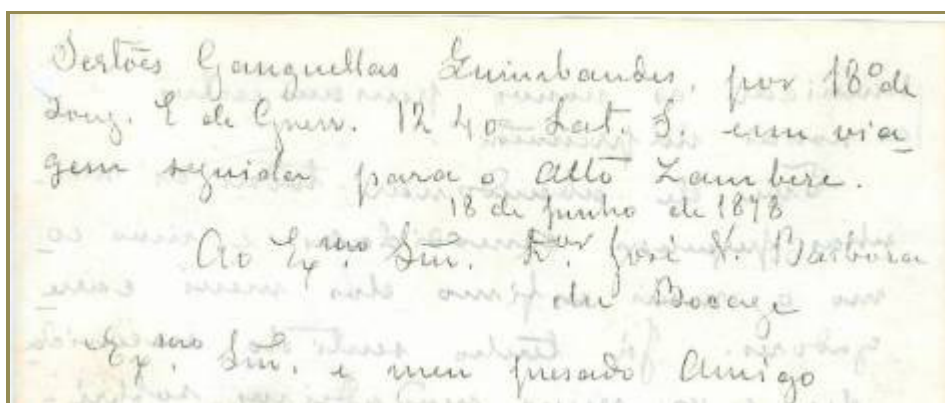 Sertões Ganguellas Luimbandes, por 18º de
Long. E de Grenw. 12 40 Lat. S. em via
gem seguida para o Alto Zambeze.
18 de Junho de 1878
Ao Ex.mo Snr. Dor José V. Barbosa
du Bocage
Ex.mo Snr. e meu presado Amigo